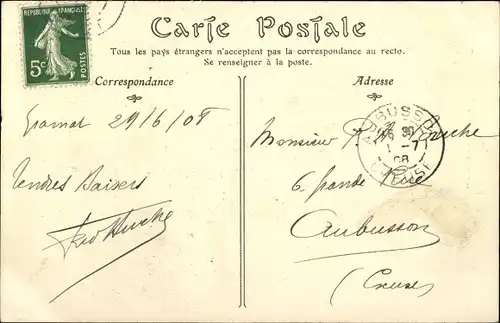 REPUBLIQUE FRANÇAISE
5c
POSTES
Carte Postale
Tous les pays étrangers n'acceptent pas la correspondance au recto.
Se renseigner à la poste.
Correspondance
Adresse
Gramat 29/6/08
Tendres Baisers
Monsieur
6 Grande Rue
Aubusson
(Creuse)
AUBUSSON
1 -7
08
CREUSE